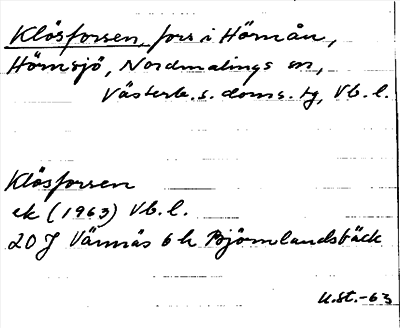 Klösforsen, fors i Hörnån,
Hörnsjö, Nordmalings sn,
Västerb. s. doms. tg, Vb. l.
Klösforsen
ek (1963) Vb. l.
20 J Vännäs 6 h Björnlandsbäck
U.St.-63